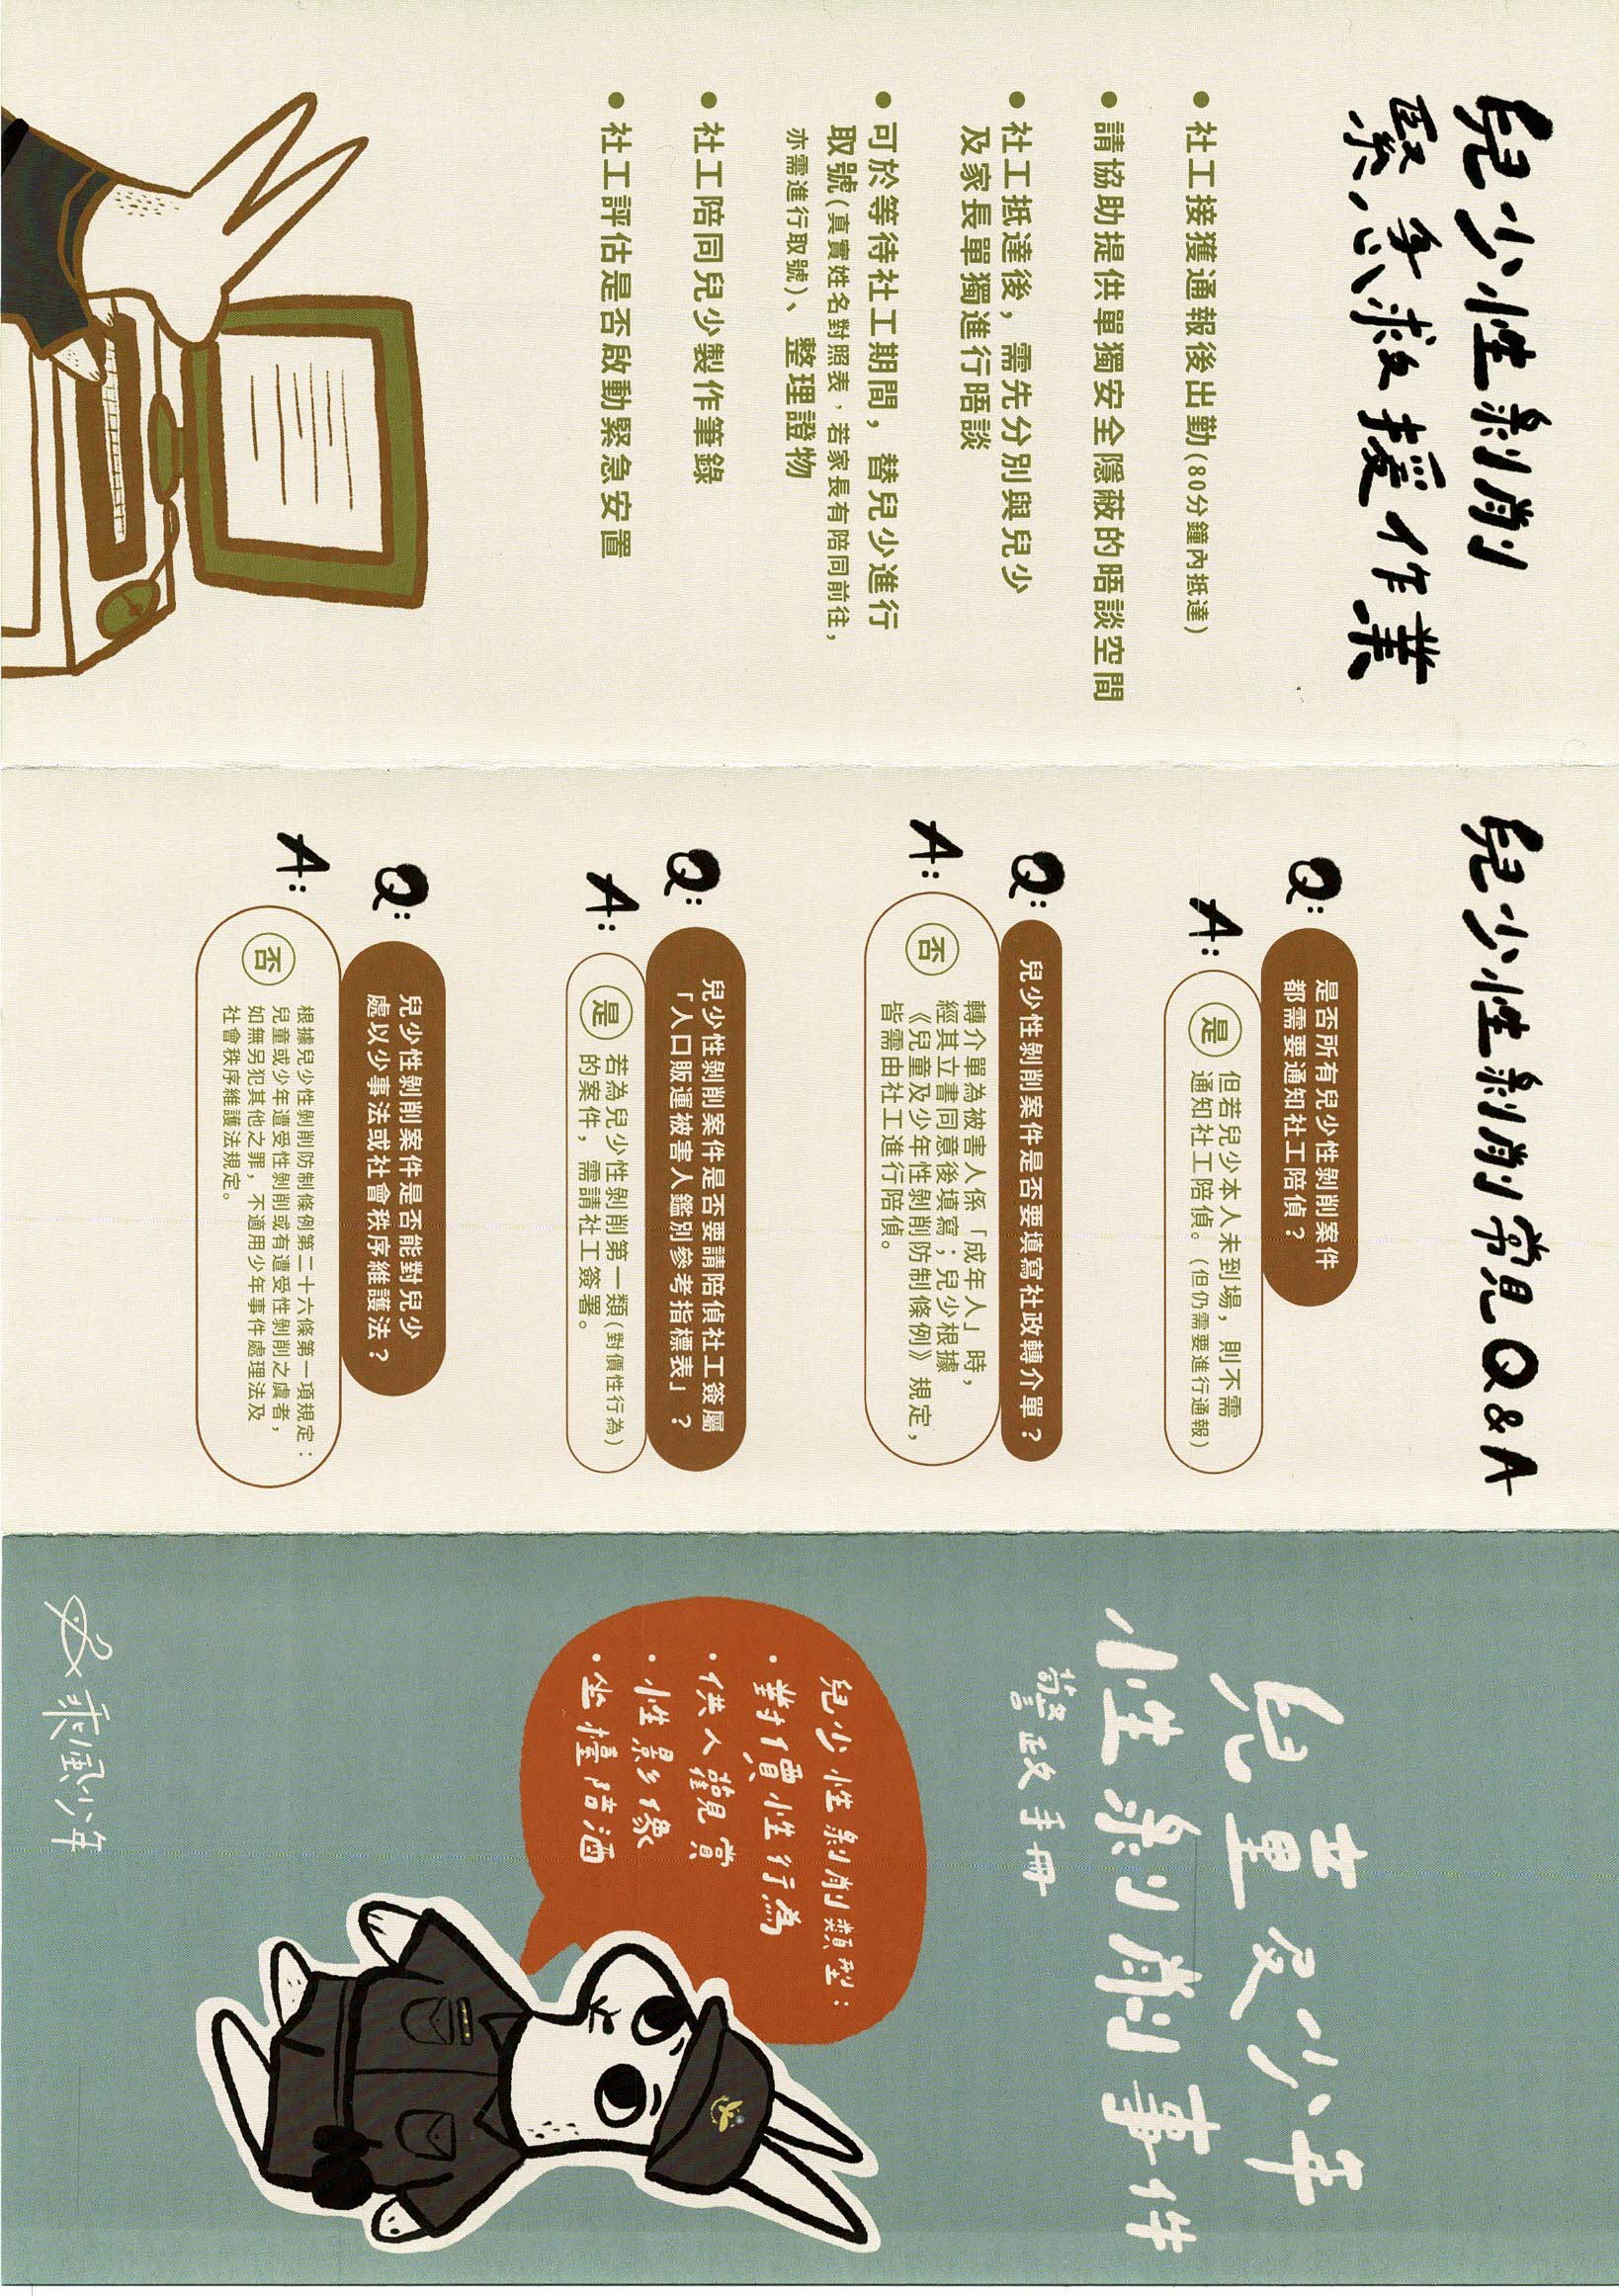 兒少性剝削
緊急救援作業
• 社工接獲通報後出勤(80分鐘內抵達)
• 請協助提供單獨安全隱蔽的晤談空間
• 社工抵達後，需先分別與兒少
及家長單獨進行晤談
• 可於等待社工期間，替兒少進行
取號(真實姓名對照表，若家長有陪同前往，
亦需進行取號)、整理證物
• 社工陪同兒少製作筆錄
• 社工評估是否啟動緊急安置
兒少性剝削常見Q&A
Q: 是否所有兒少性剝削案件
都需要通知社工陪偵？
A: 是 但若兒少本人未到場，則不需
通知社工陪偵。(但仍需要進行通報)
Q: 兒少性剝削案件是否要填寫社政轉介單？
A: 否 轉介單為被害人係「成年人」時，
經其立書同意後填寫；兒少根據
《兒童及少年性剝削防制條例》規定，
皆需由社工進行陪偵。
Q: 兒少性剝削案件是否要請陪偵社工簽屬
「人口販運被害人鑑別參考指標表」？
A: 是 若為兒少性剝削第一類(對價性行為)
的案件，需請社工簽署。
Q: 兒少性剝削案件是否能對兒少
處以少事法或社會秩序維護法？
A: 否 根據兒少性剝削防制條例第二十六條第一項規定：
兒童或少年遭受性剝削或有遭受性剝削之虞者，
如無另犯其他之罪，不適用少年事件處理法及
社會秩序維護法規定。
兒童及少年
性剝削事件
警政手冊
兒少性剝削類型：
• 對價性行為
• 供人觀賞
• 性影像
• 坐檯陪酒
乘風少年